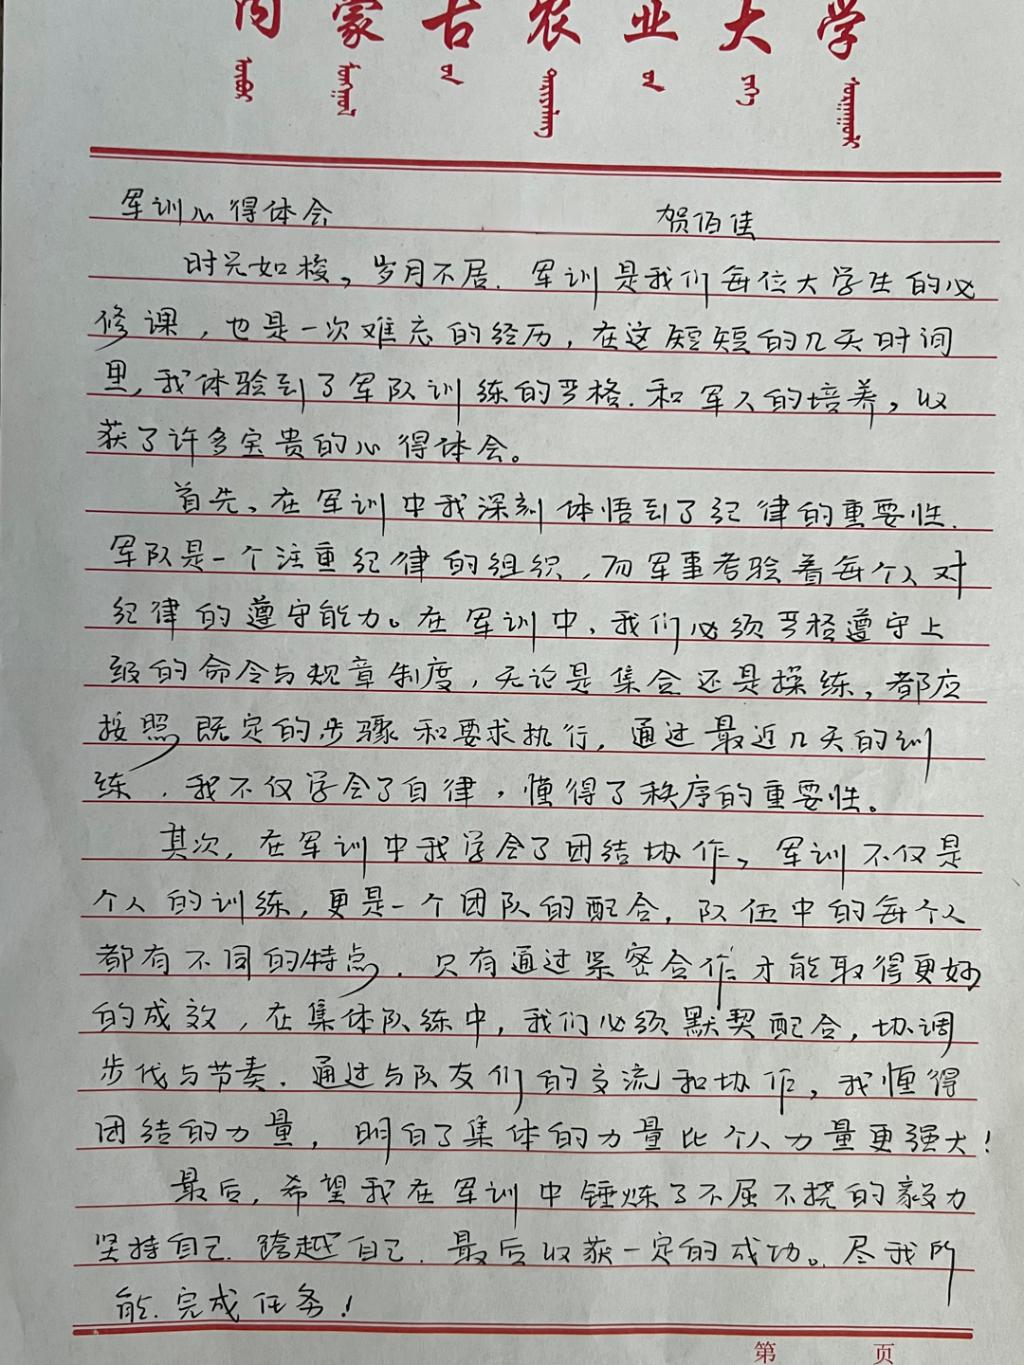 内蒙古农业大学
军训心得体会 贺佰佳
时光如梭，岁月不居．军训是我们每位大学生的必
修课，也是一次难忘的经历，在这短短的几天时间
里，我体验到了军队训练的严格．和军人的培养，收
获了许多宝贵的心得体会。
首先、在军训中我深刻体悟到了纪律的重要性．
军队是一个注重纪律的组织，而军事考验着每个人对
纪律的遵守能力。在军训中，我们必须严格遵守上
级的命令与规章制度，无论是集合还是操练，都应
按照既定的步骤和要求执行，通过最近几天的训
练，我不仅学会了自律，懂得了秩序的重要性。
其次，在军训中我学会了团结协作，军训不仅是
个人的训练，更是一个团队的配合，队伍中的每个人
都有不同的特点．只有通过紧密合作才能取得更妙
的成效，在集体队练中，我们必须默契配合，协调
步伐与节奏．通过与队友们的交流和协作，我懂得
团结的力量，明白了集体的力量比个人力量更强大！
最后，希望我在军训中锤炼了不屈不挠的毅力
坚持自己．跨越自己．最后收获一定的成功。尽我所
能．完成任务！
第 页